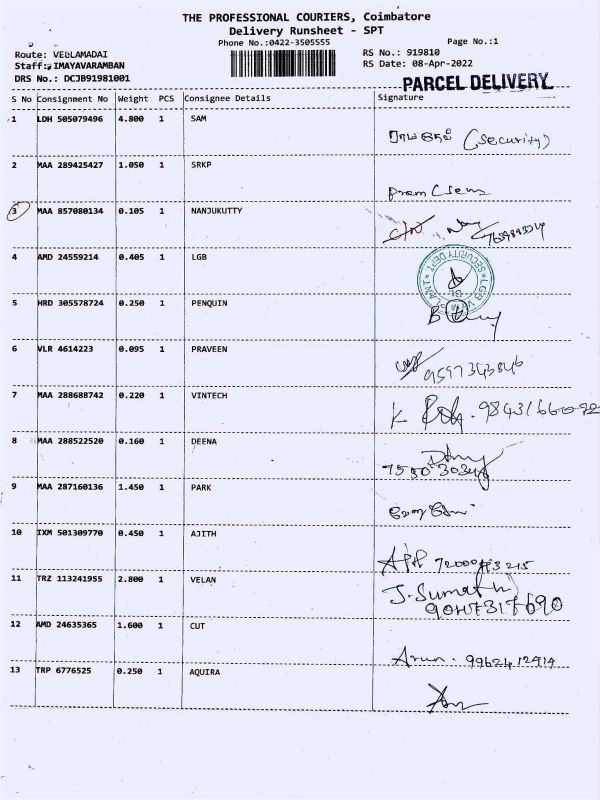 THE PROFESSIONAL COURIERS, Coimbatore
Delivery Runsheet - SPT
Phone No.:0422-3505555
Page No.:1
Route: VELLAMADAI
RS No.: 919810
Staff: IMAYAVARAMBAN
RS Date: 08-Apr-2022
DRS No.: DCJB91981001
PARCEL DELIVERY
S No Consignment No Weight PCS Consignee Details Signature
1 LDH 505079496 4.800 1 SAM
(Security)
2 MAA 289425427 1.050 1 SRKP
3 MAA 857080134 0.105 1 NANJUKUTTY
4 AMD 24559214 0.405 1 LGB
LGB SECURITY DEPT
5 HRD 305578724 0.250 1 PENQUIN
6 VLR 4614223 0.095 1 PRAVEEN
9597343846
7 MAA 288688742 0.220 1 VINTECH
9843166092
8 MAA 288522520 0.160 1 DEENA
9 MAA 287160136 1.450 1 PARK
10 IXM 501309770 0.450 1 AJITH
11 TRZ 113241955 2.800 1 VELAN
J. Sumathi
9047317690
12 AMD 24635365 1.600 1 CUT
Arun. 9962412414
13 TRP 6776525 0.250 1 AQUIRA